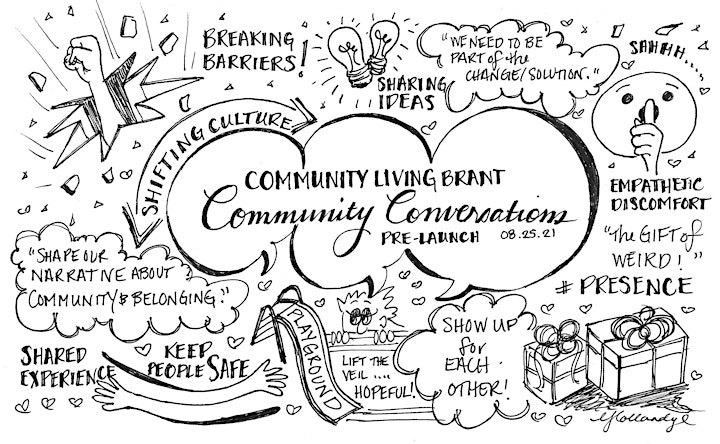 BREAKING
BARRIERS!
SHARING
IDEAS
"WE NEED TO BE
PART of the
CHANGE/SOLUTION."
SAHHH.....
SHIFTING CULTURE
COMMUNITY LIVING BRANT
Community Conversations
PRE-LAUNCH 08.25.21
EMPATHETIC
DISCOMFORT
"The GIFT of
WEIRD!"
# PRESENCE
"SHAPE OUR
NARRATIVE ABOUT
COMMUNITY & BELONGING."
SHARED
EXPERIENCE
KEEP
PEOPLE SAFE
PLAYGROUND
LIFT THE
VEIL ....
HOPEFUL!
SHOW UP
for
EACH
OTHER!